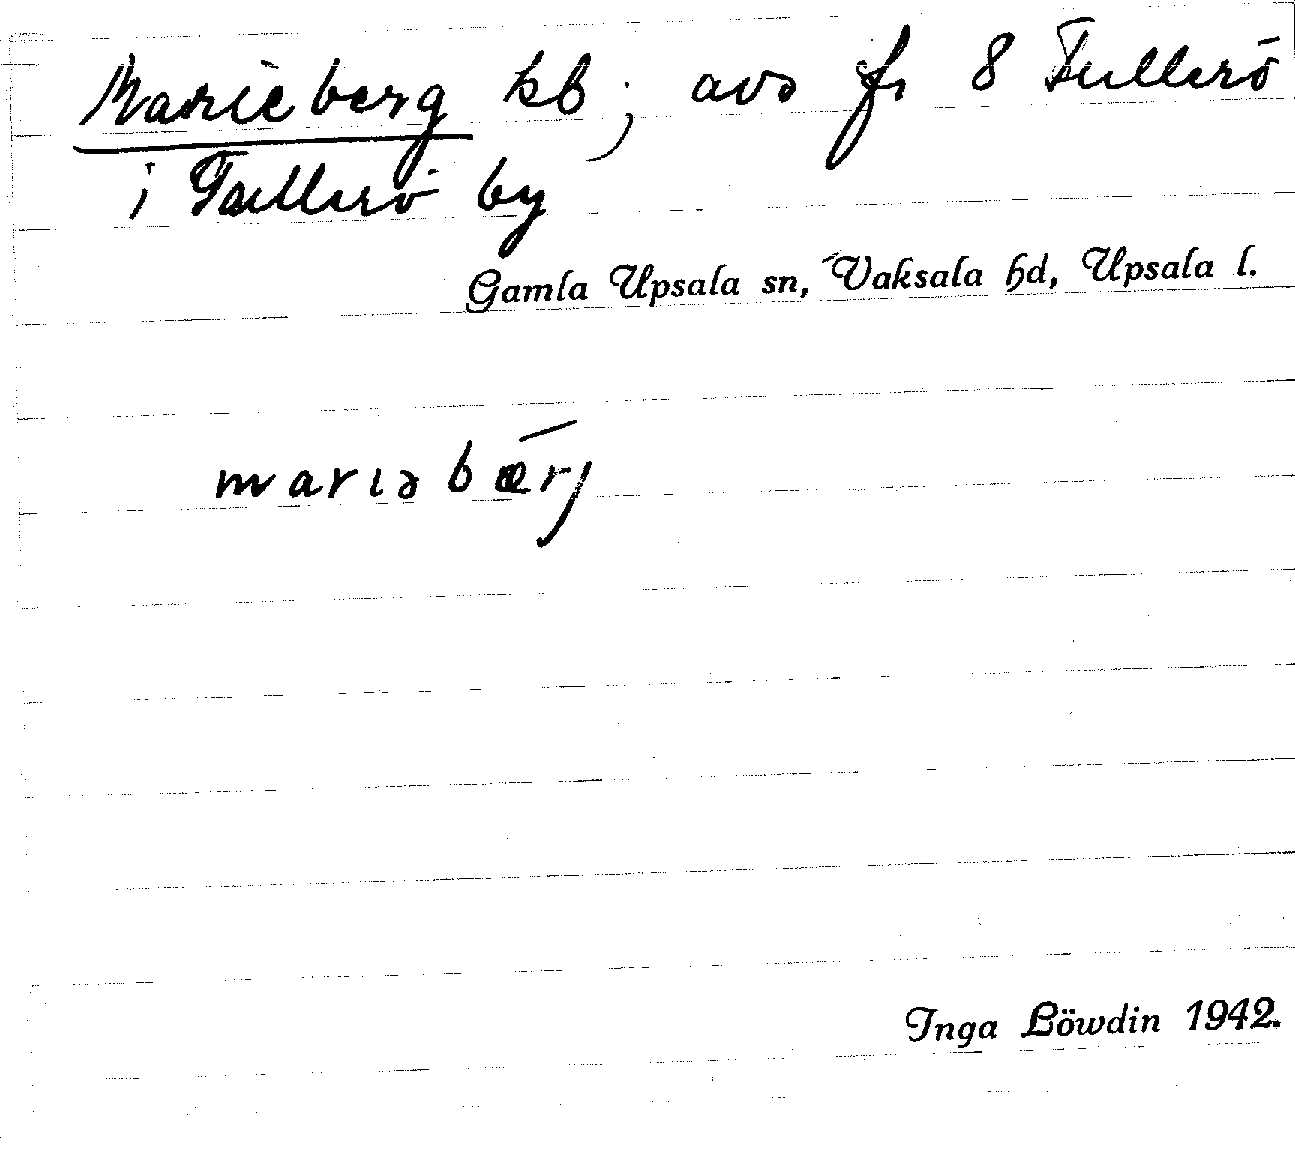 Marieberg kb; avs fr 8 Fullerö
i Fullerö by
Gamla Upsala sn, Vaksala hd, Upsala l.
mariəbær̄j
Inga Löwdin 1942.